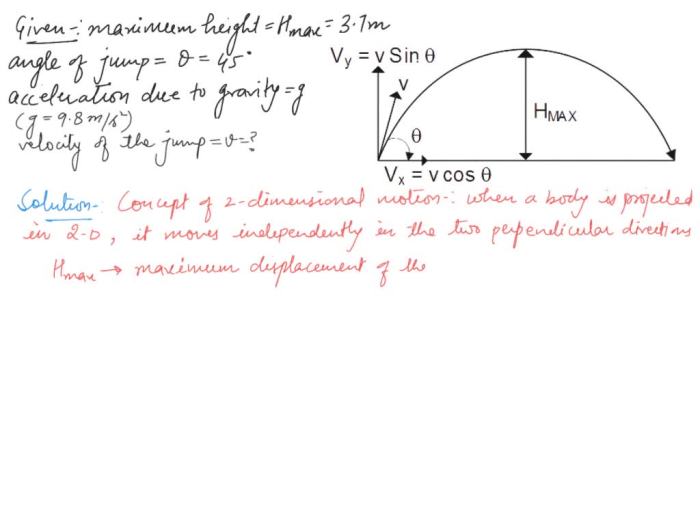 Given-: maximum height = Hmax = 3.7m
angle of jump = θ = 45°
acceleration due to gravity = g
(g = 9.8 m/s²)
velocity of the jump = v = ?
Vy = v Sin θ
v
θ
HMAX
Vx = v cos θ
Solution-: Concept of 2-dimensional motion-: when a body is projected
in 2-D, it moves independently in the two perpendicular directions
Hmax → maximum displacement of the